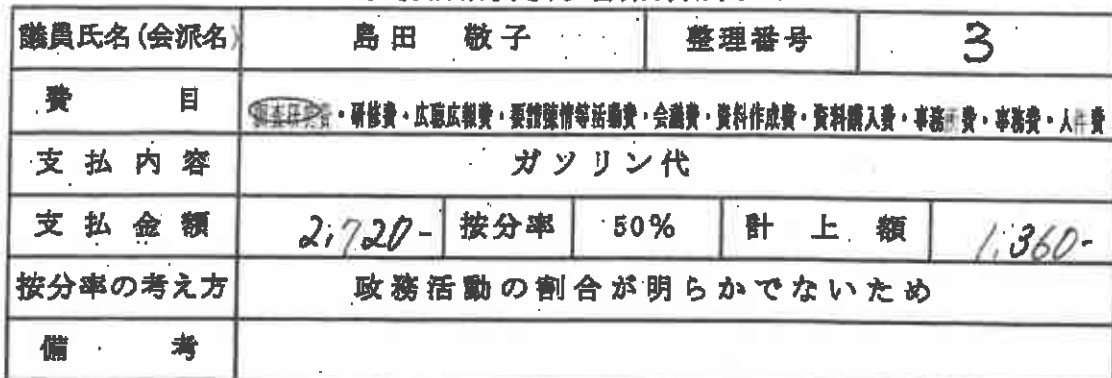 議員氏名(会派名) 島田 敬子 整理番号 3
費 目 調査研究費・研修費・広聴広報費・要請陳情等活動費・会議費・資料作成費・資料購入費・事務所費・事務費・人件費
支払内容 ガソリン代
支払金額 2,720- 按分率 50% 計上額 1,360-
按分率の考え方 政務活動の割合が明らかでないため
備 考